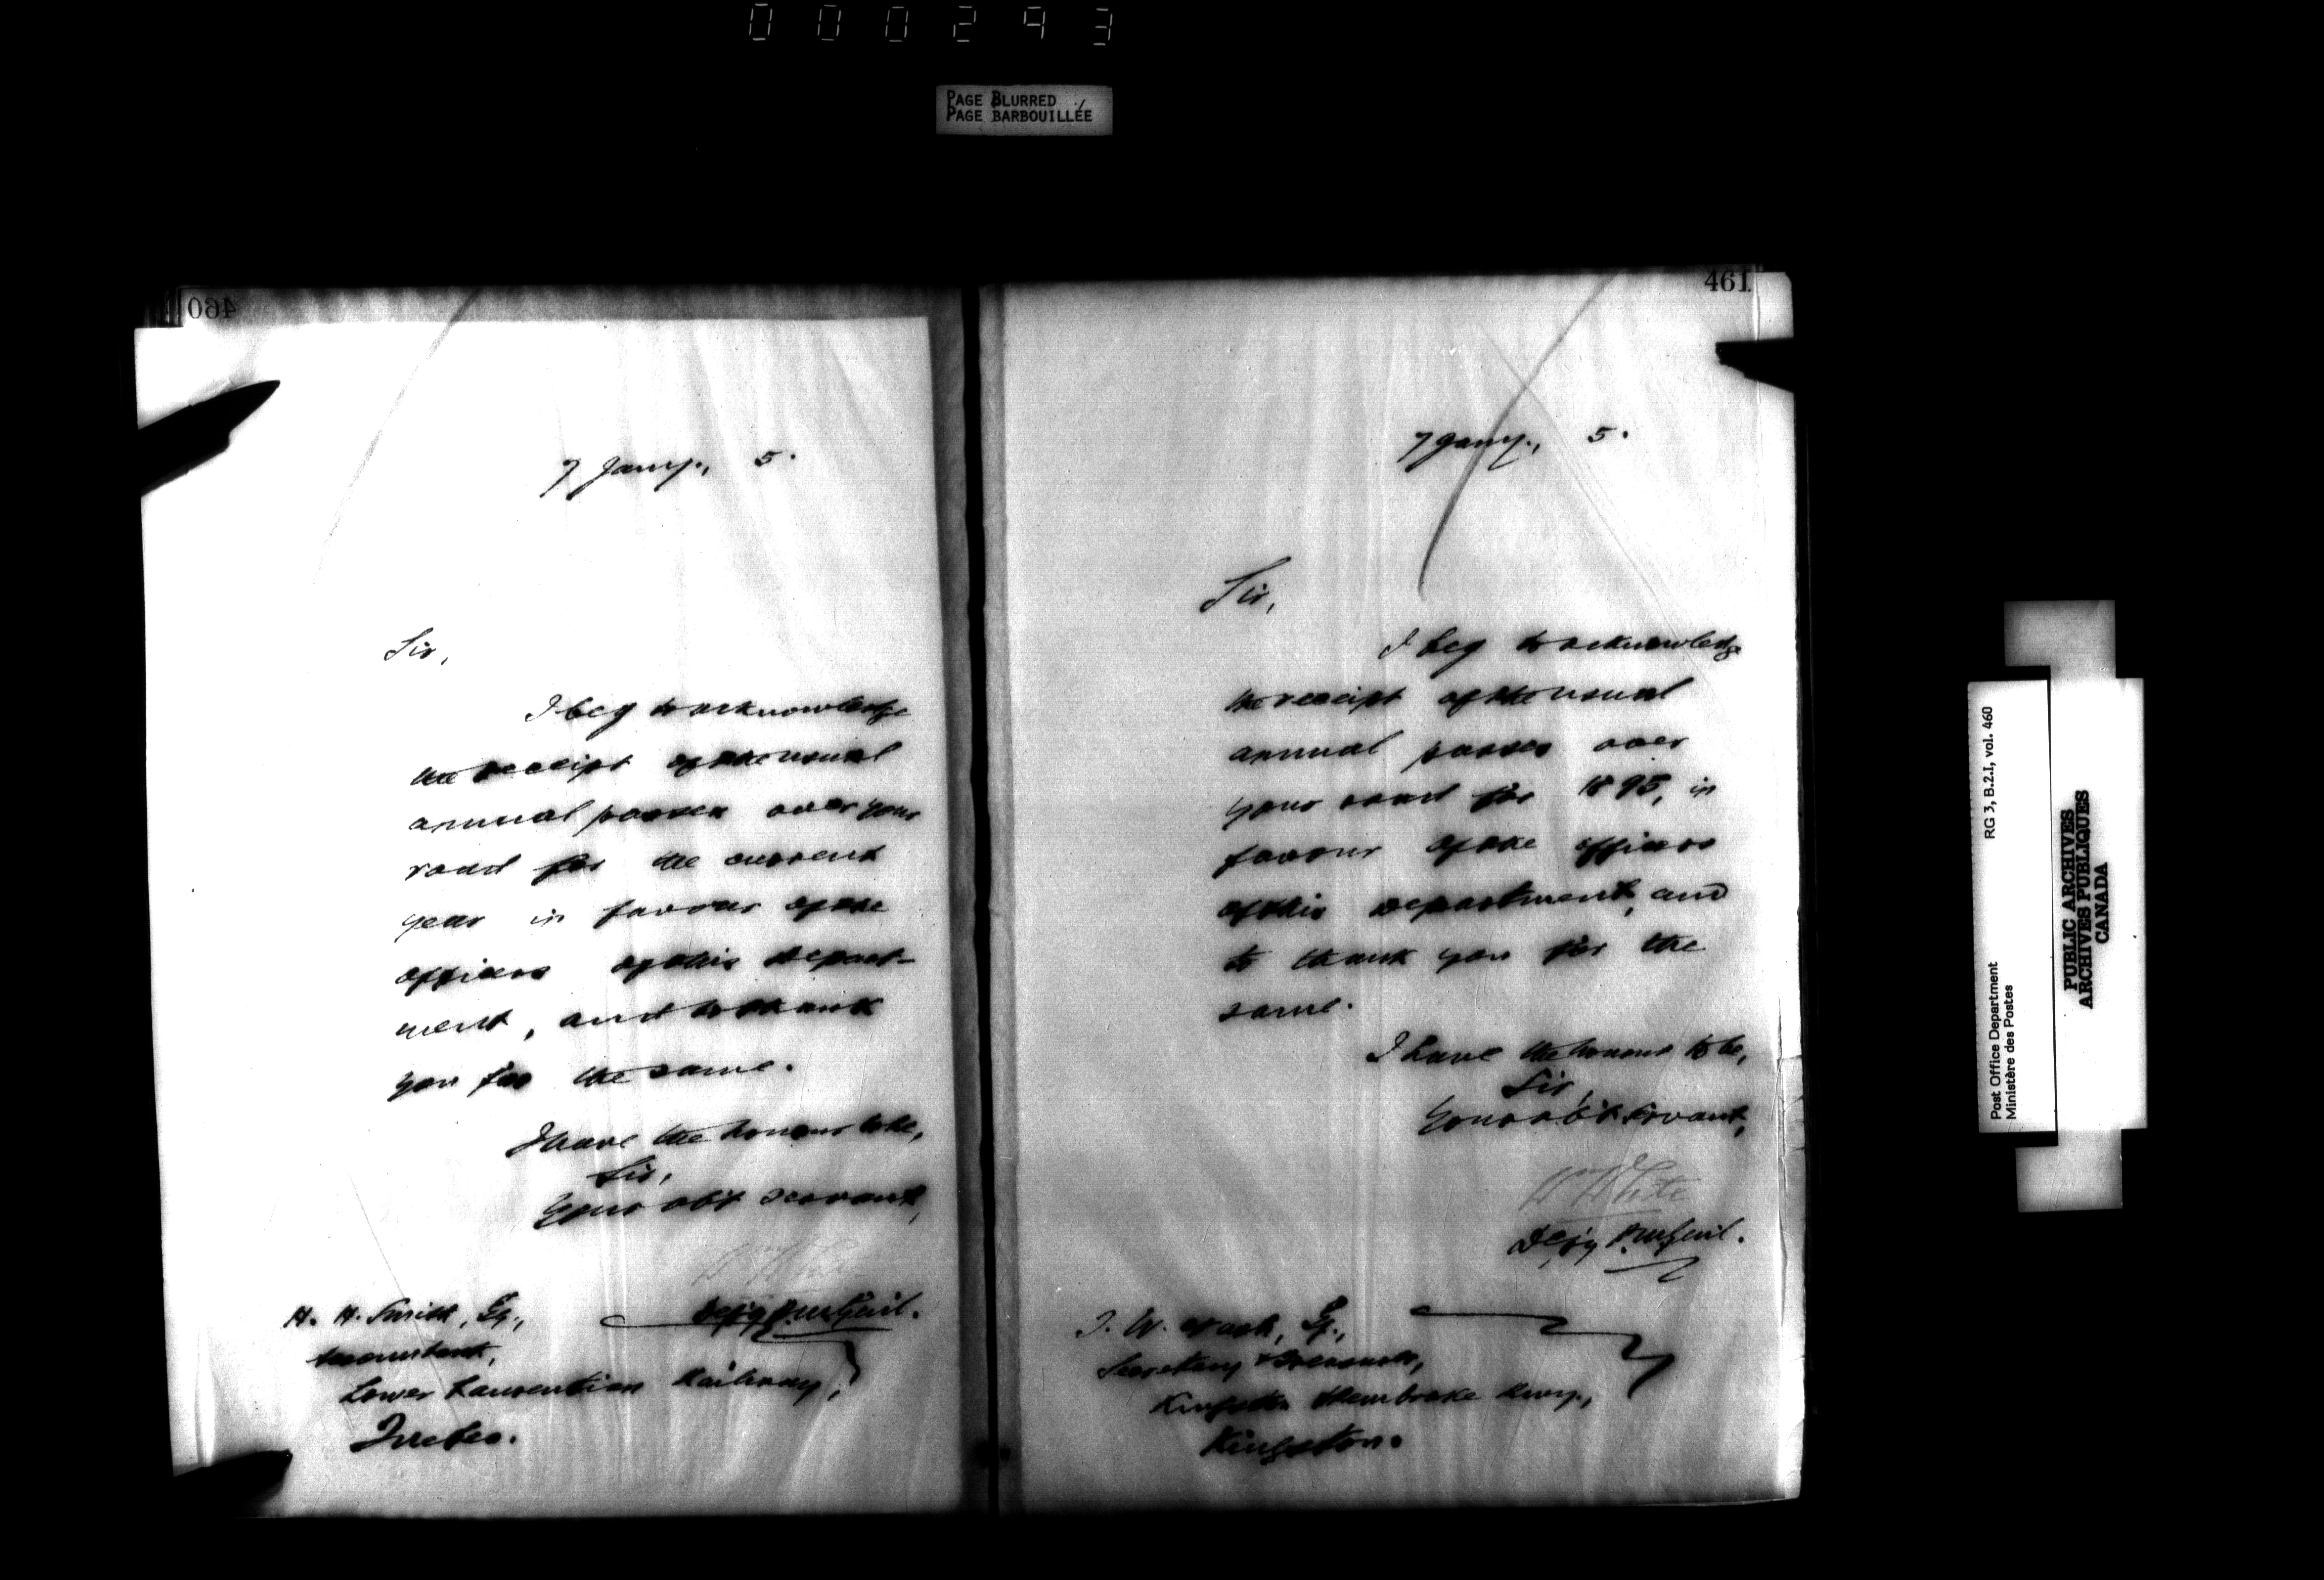 000293
PAGE BLURRED
PAGE BARBOUILLÉE
460
7 Jany., 5.
Sir,
I beg to acknowledge
the receipt of the usual
annual passes over your
road for the current
year in favour of the
officers of this Depart-
ment, and to thank
you for the same.
I have the honour to be,
Sir,
Your obt servant,
Wm White
Depy P.M. Genl.
H. H. Smith, Esq.,
Accountant,
Lower Laurentian Railway,
Quebec.
461
7 Jany., 5.
Sir,
I beg to acknowledge
the receipt of the usual
annual passes over
your road for 1895, in
favour of the officers
of this Department, and
to thank you for the
same.
I have the honour to be,
Sir,
Your obt servant,
Wm White
Depy P.M. Genl.
W. Esq.,
Secretary & Treasurer,
Kingston & Pembroke Rwy.,
Kingston.
Post Office Department RG 3, B.2.I, vol. 460
Ministère des Postes
PUBLIC ARCHIVES
ARCHIVES PUBLIQUES
CANADA